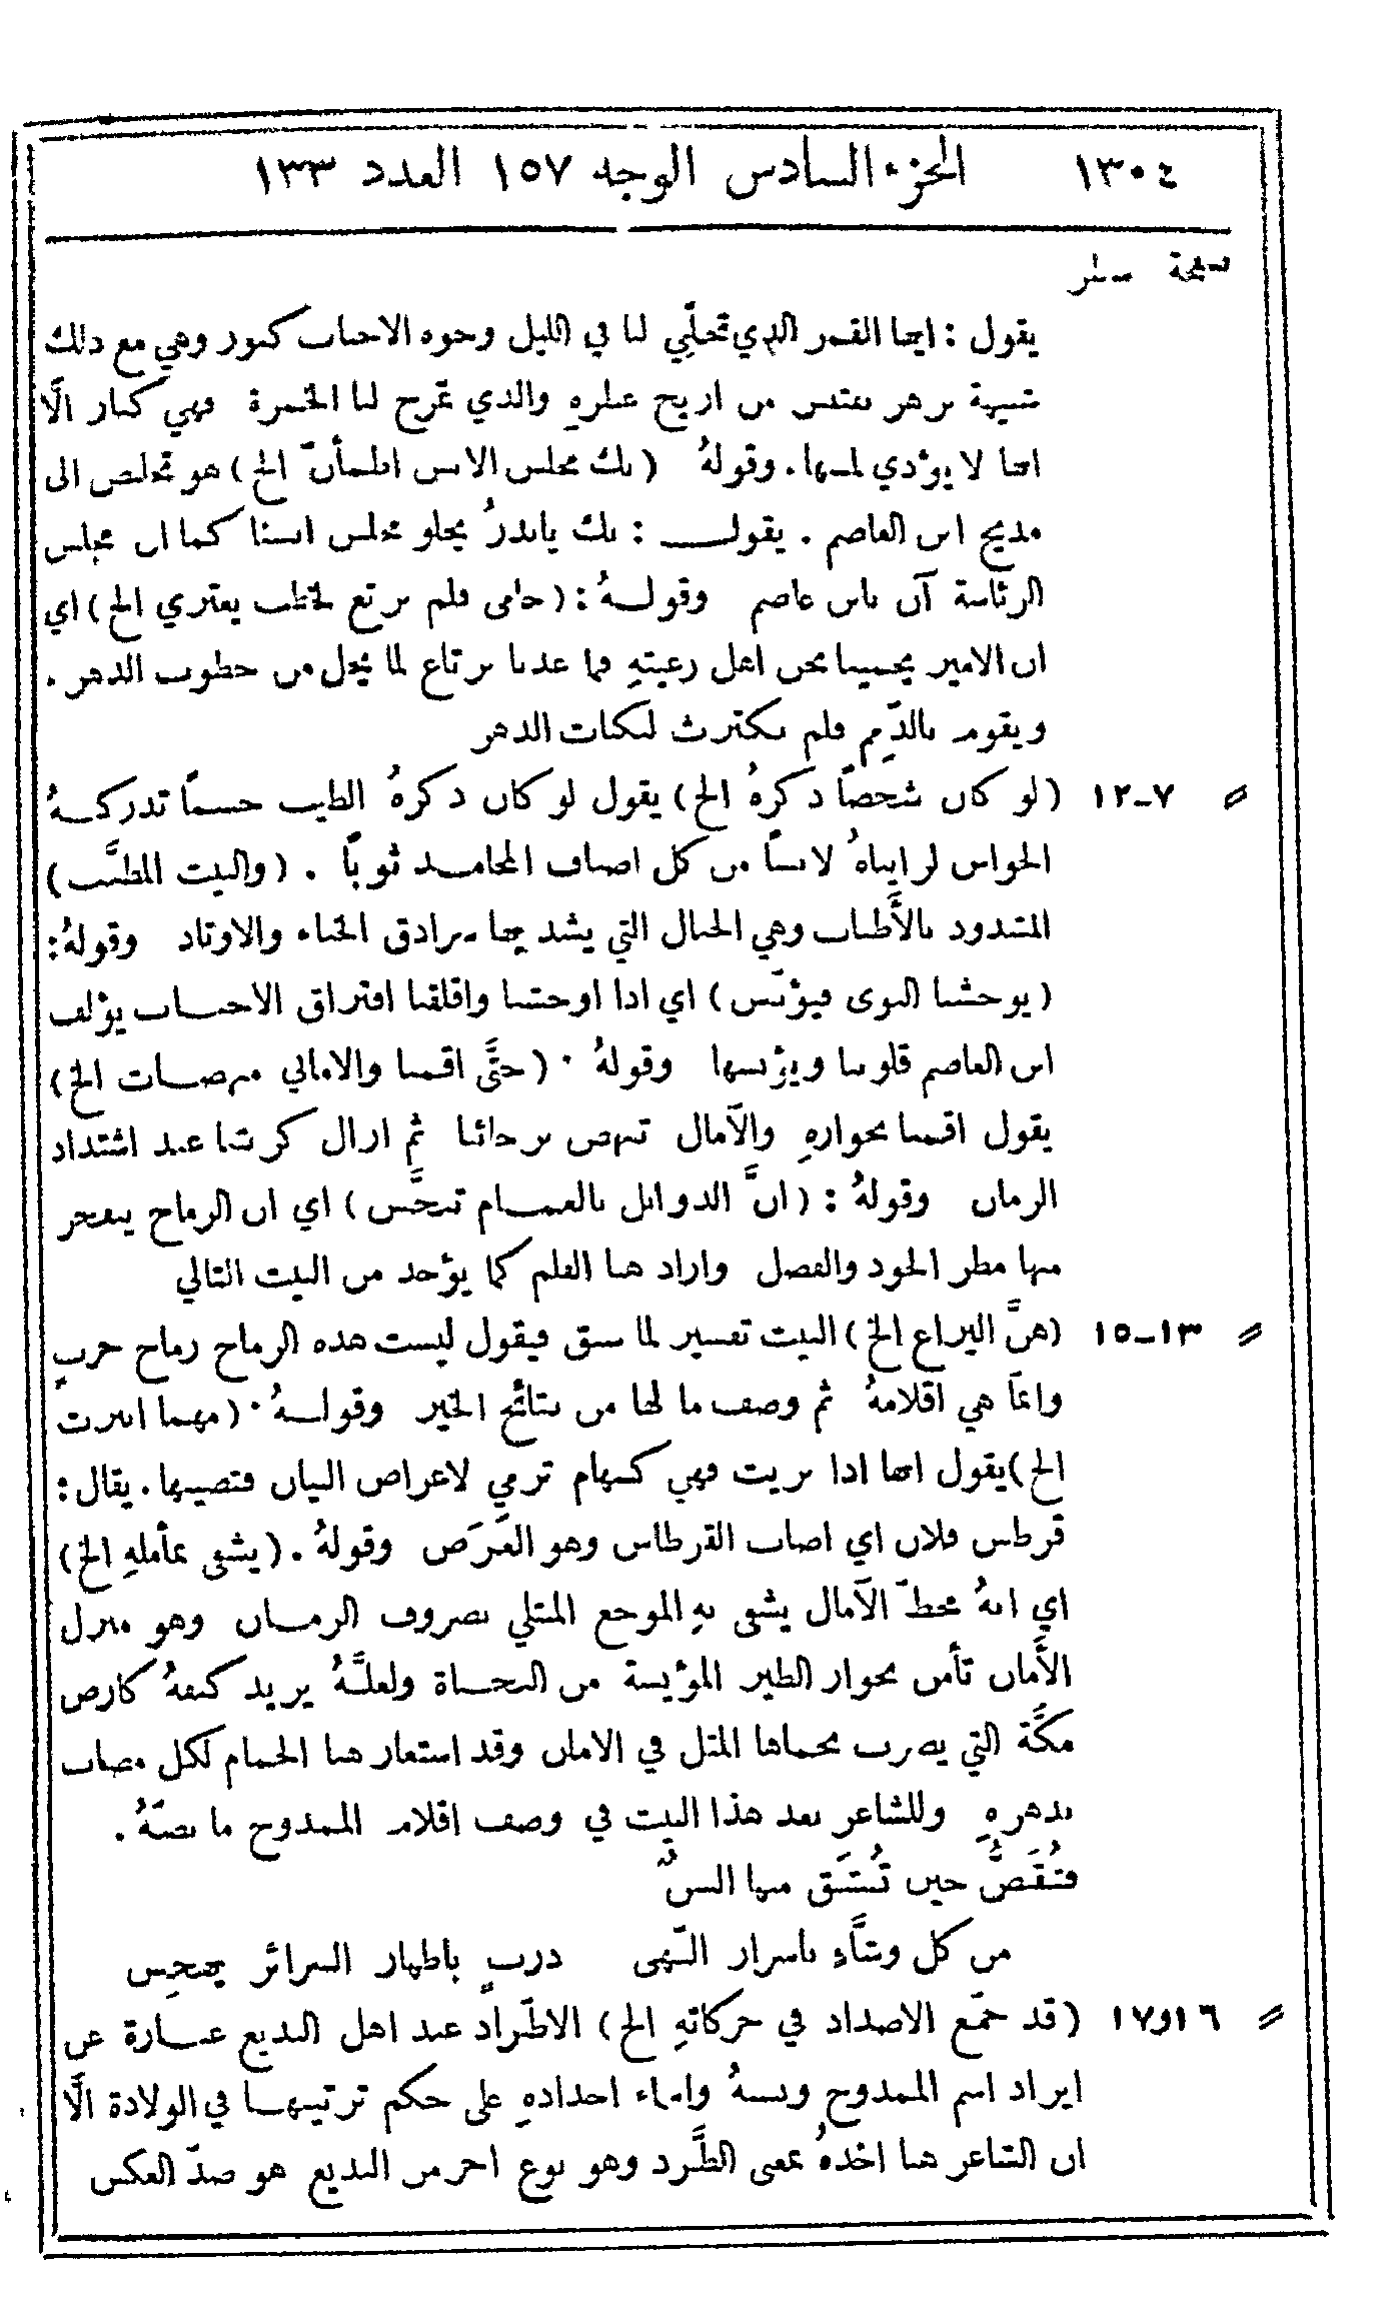 ١٣٠٤ الجزء السادس الوجه ١٥٧ العدد ١٣٣
صفحة سطر
يقول : ايها القمر الذي تجلّي لنا في الليل وجوه الاحباب كبدور وهي مع ذلك
شبيهة بزهر يقتبس من اريج عطرهِ والذي تمزج لنا الخمرة فهي كنار الَّا
انها لا يؤذي لمسها . وقولهُ (بك مجلس الانس اطمأنّ الخ) هو تخلص الى
مديح ابن العاصم . يقول : بك يا بدرُ يحلو مجلس انسنا كما ان مجلس
الرئاسة آن بابن عاصم وقولهُ : (حامى فلم نرتع لخطب يعتري الخ) اي
ان الامير يحمينا نحن اهل رعيتهِ فما عدنا نرتاع لما يحل من خطوب الدهر .
ويقوم بالذّمم فلم نكترث لنكبات الدهر
= ٧-١٢ (لو كان شخصاً ذكرهُ الخ) يقول لو كان ذكرهُ الطيب جسماً تدركهُ
الحواس لرايناهُ لابساً من كل اصناف المحامد ثوباً . (والبيت المطنَّب)
المشدود بالأَطناب وهي الحبال التي يشد بها سرادق الخباء والاوتاد وقولهُ :
(يوحشنا النوى فيؤنّس) اي اذا اوحشنا واقلقنا افتراق الاحباب يؤلف
ابن العاصم قلوبنا ويؤنسها وقولهُ . (حتَّى اقمنا والاماني منهضات الخ)
يقول اقمنا بجوارهِ والآمال تنهض برجائنا ثم ازال كربتنا عند اشتداد
الزمان وقولهُ : (انَّ الذوابل بالغمام تبجَّس) اي ان الرماح ينفجر
منها مطر الجود والفضل واراد هنا القلم كما يؤخذ من البيت التالي
= ١٣-١٥ (هنَّ اليراع الخ) البيت تفسير لما سبق فيقول ليست هذه الرماح رماح حربٍ
وانما هي اقلامهُ ثم وصف ما لها من نتائج الخير وقولهُ . (مهما انبرت
الخ) يقول انها اذا بريت فهي كسهام ترمي لاغراض البيان فتصيبها . يقال :
قرطس فلان اي اصاب القرطاس وهو الغَرَض وقولهُ . (يشفى بمأملهِ الخ)
اي انهُ محطّ الآمال يشفى بهِ الموجع المبتلي بصروف الزمان وهو منزل
الأَمان تأمن بجوار الطير المؤيسة من النجاة ولعلَّهُ يريد كنفهُ كارض
مكَّة التي يضرب بحماها المثل في الامان وقد استعار هنا الحمام لكل مصاب
بدهرهِ وللشاعر بعد هذا البيت في وصف اقلام الممدوح ما نصّهُ .
فتُقَصُّ حين تُشَق منها السنٌ
من كل وشَّاءٍ باسرار النّهى دربٍ باظهار السرائر يهجس
= ١٦و١٧ (قد جمّع الاضداد في حركاتهِ الخ) الاطّراد عند اهل البديع عبارة عن
ايراد اسم الممدوح ونسبهُ واسماء اجدادهِ على حكم ترتيبها في الولادة الَّا
ان الشاعر هنا اخذهُ بمعنى الطَّرد وهو نوع اخر من البديع هو ضدّ العكس